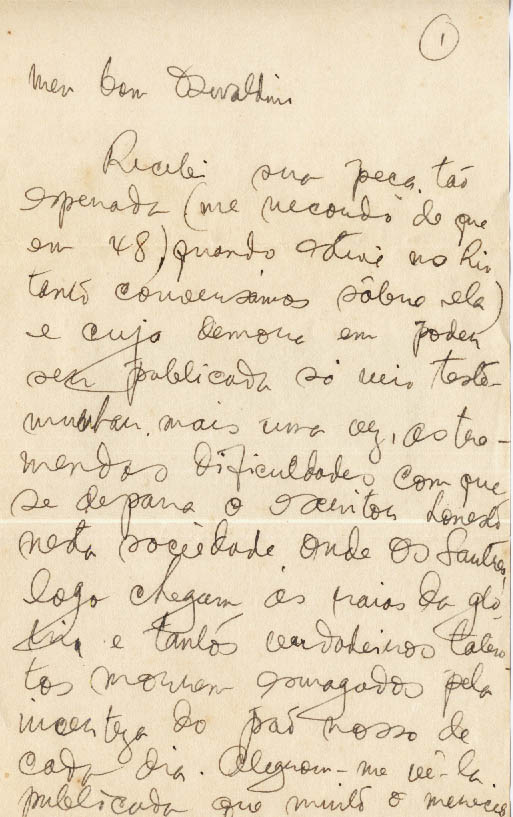 1
Meu bom Osvaldinº
Recebi sua peça tão
esperada (me recordo de que
em 48, quando estive no Rio
tanto conversamos sôbre ela)
e cuja demora em poder
ser publicada só veio teste-
munhar, mais uma vez, as tre-
mendas dificuldades com que
se depara o escritor honesto
nesta sociedade onde os Sartres
logo chegam às raias da gló-
ria e tantos verdadeiros talen-
tos morrem esmagados pela
incerteza do pão nosso de
cada dia. Alegrou-me vê-la
publicada que muito o merecia